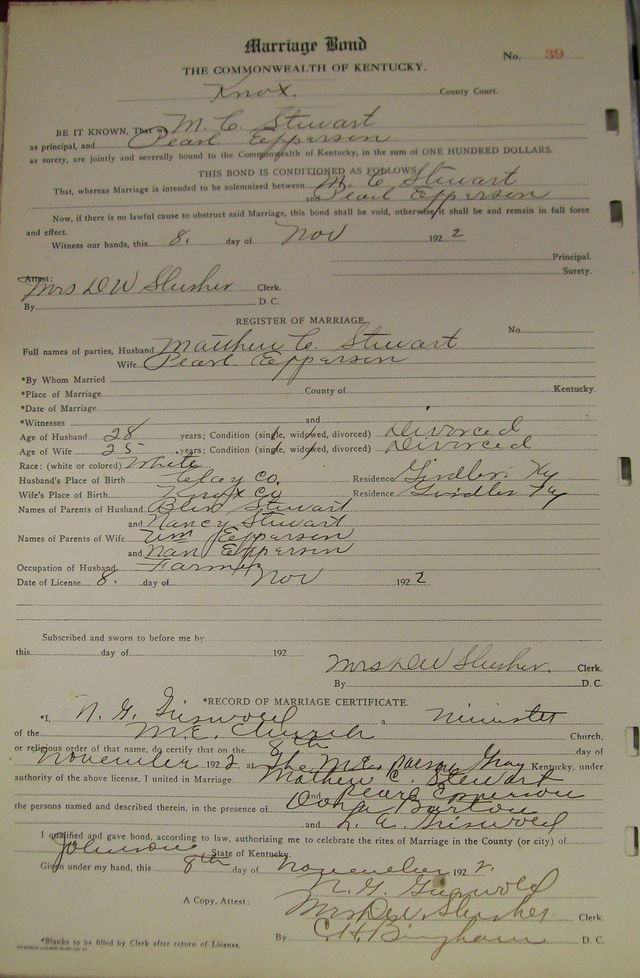 Marriage Bond
No. 39
THE COMMONWEALTH OF KENTUCKY.
Knox County Court.
BE IT KNOWN, That we M. C. Stewart
as principal, and Pearl Epperson
as surety, are jointly and severally bound to the Commonwealth of Kentucky, in the sum of ONE HUNDRED DOLLARS.
THIS BOND IS CONDITIONED AS FOLLOWS:
That, whereas Marriage is intended to be solemnized between M. C Stewart
and Pearl Epperson
Now, if there is no lawful cause to obstruct said Marriage, this bond shall be void, otherwise it shall be and remain in full force
and effect.
Witness our hands, this 8. day of Nov 1922
Principal.
Surety.
Attest:
Mrs D W Slusher Clerk.
By D. C.
REGISTER OF MARRIAGE.
No.
Full names of parties, Husband Matthew C. Stewart
Wife Pearl Epperson
*By Whom Married
*Place of Marriage County of Kentucky.
*Date of Marriage
*Witnesses and
Age of Husband 28 years; Condition (single, widowed, divorced) Divorced
Age of Wife 25 years; Condition (single, widowed, divorced) Divorced
Race: (white or colored) White
Husband's Place of Birth Clay Co. Residence Girdler, Ky
Wife's Place of Birth Knox Co Residence Girdler Ky
Names of Parents of Husband Stewart
and Nancy Stewart
Names of Parents of Wife Wm Epperson
and Nan Epperson
Occupation of Husband Farmer
Date of License 8. day of Nov 1922
Subscribed and sworn to before me by
this day of 192
Mrs D W Slusher. Clerk.
By D. C.
*RECORD OF MARRIAGE CERTIFICATE.
*I, N. G. Griswold a Minister
of the M.E. Church Church,
or religious order of that name, do certify that on the 8th day of
November 1922 at The M.E. Kentucky, under
authority of the above license, I united in Marriage Mathew C. Stewart
and Pearl Epperson
the persons named and described therein, in the presence of Barton
and L. A. Griswold
I qualified and gave bond, according to law, authorizing me to celebrate the rites of Marriage in the County (or city) of
Johnson State of Kentucky.
Given under my hand, this 8th day of November 1922.
N. G. Griswold
A Copy, Attest: Mrs D W Slusher Clerk.
By C. H. Bingham D. C.
*Blanks to be filled by Clerk after return of License.